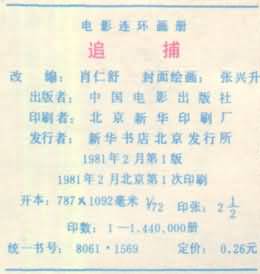 电影连环画册
追捕
改编：肖仁舒 封面绘画：张兴升
出版者：中国电影出版社
印刷者：北京新华印刷厂
发行者：新华书店北京发行所
1981年2月第1版
1981年2月北京第1次印刷
开本：787×1092毫米 1/72 印张：2 1/2
印数：1—1,440,000册
统一书号：8061·1569 定价：0.26元